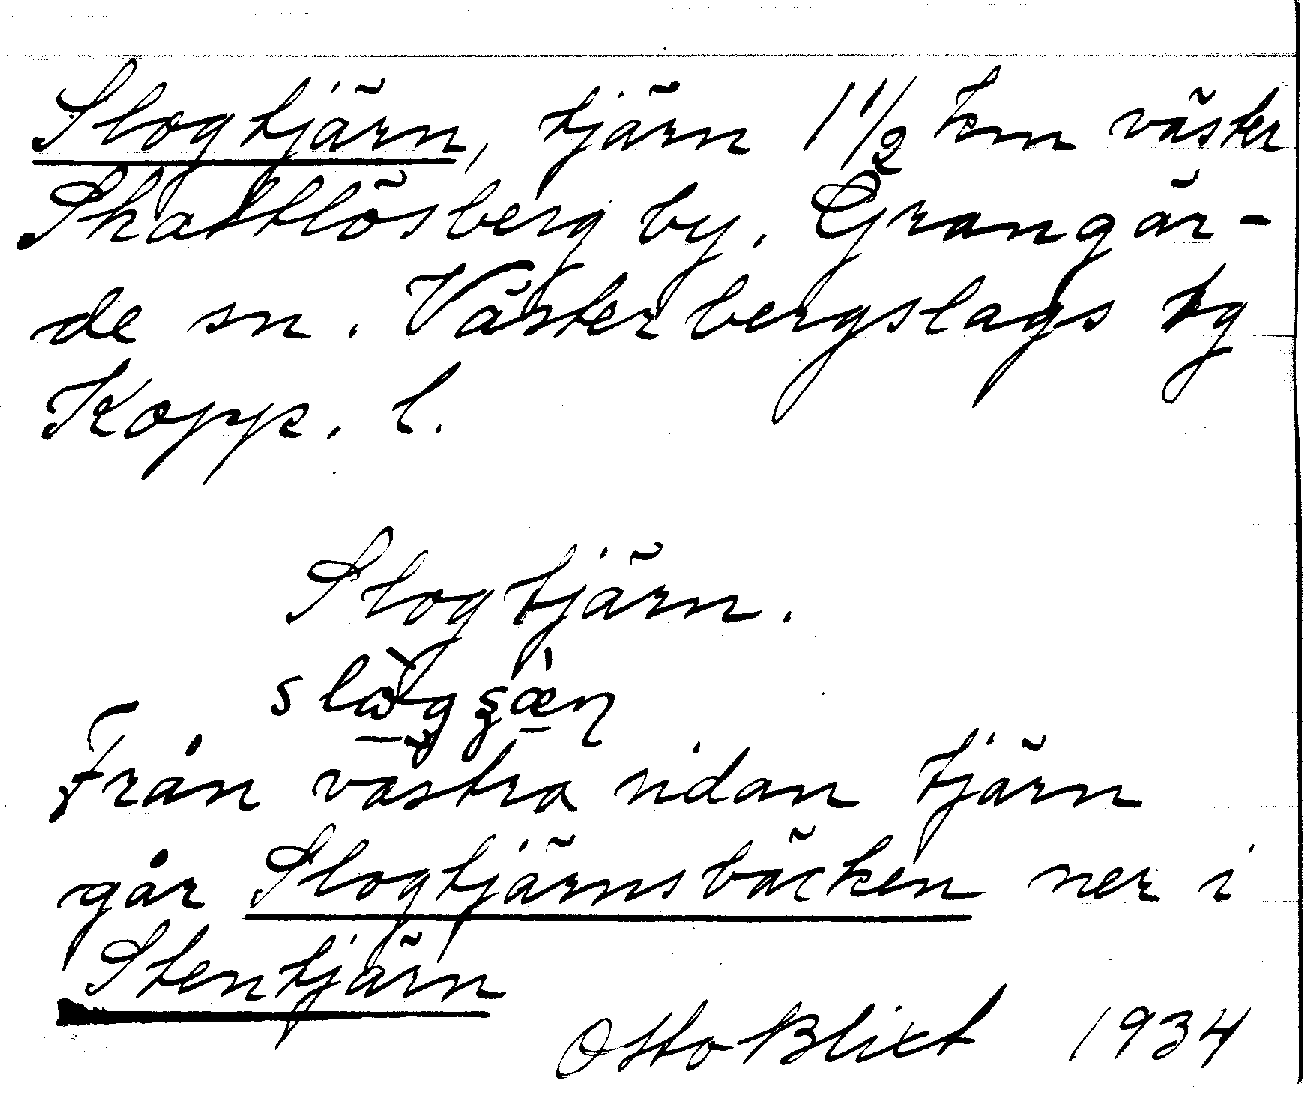 Slogtjärn, tjärn 1 1/2 km väster
Skattlösberg by. Grangär-
de sn. Västerbergslags tg
Kopp. l.
Slogtjärn.
Från västra sidan tjärn
går Slogtjärnsbäcken ner i
Stentjärn
Otto Blixt 1934